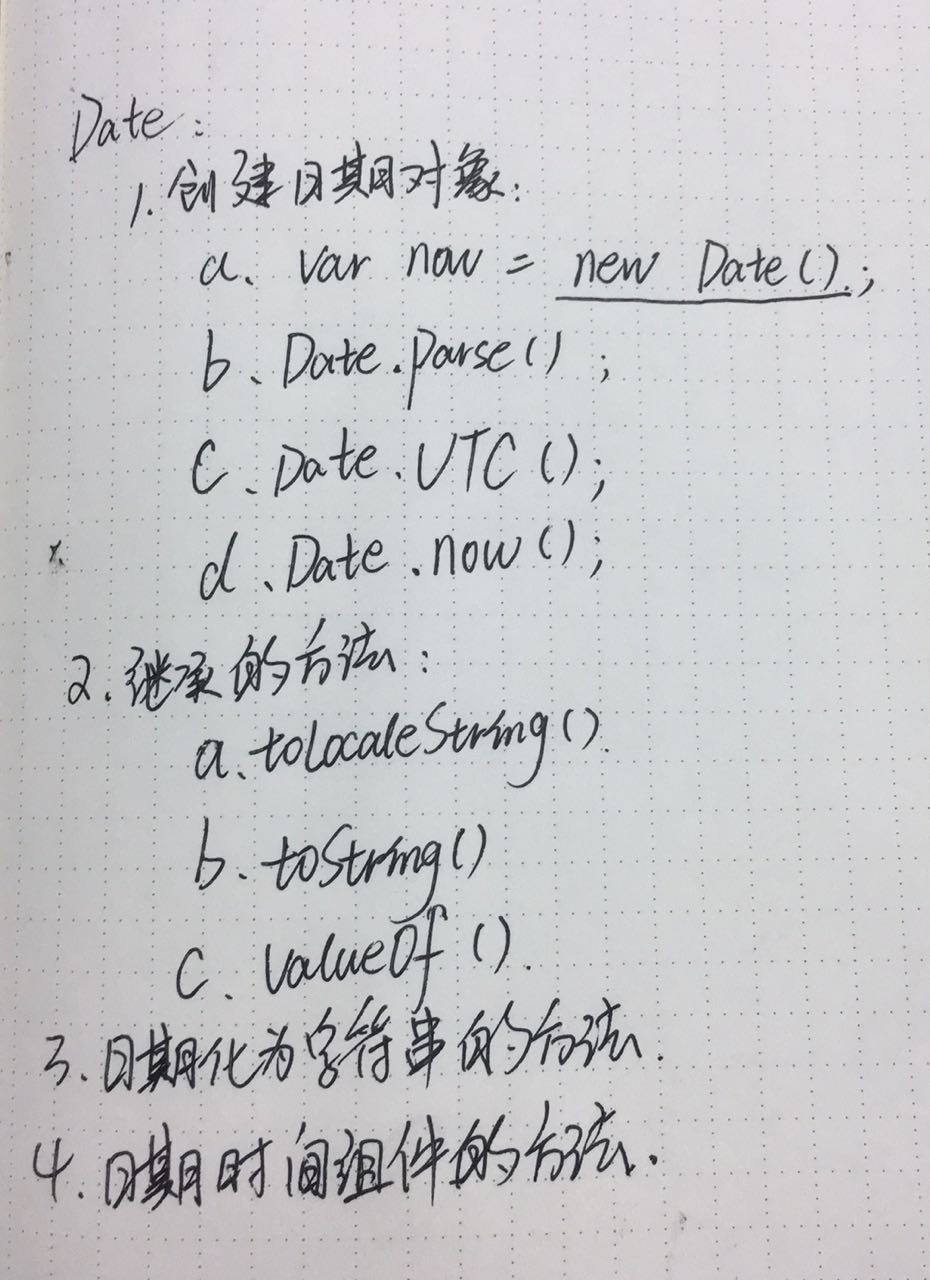 Date:
1. 创建日期对象:
a、var now = new Date().;
b、Date.parse();
c、Date.UTC();
d、Date.now();
2.继承的方法:
a、toLocaleString().
b. toString()
c. valueOf().
3.日期化为字符串的方法.
4.日期时间组件的方法.